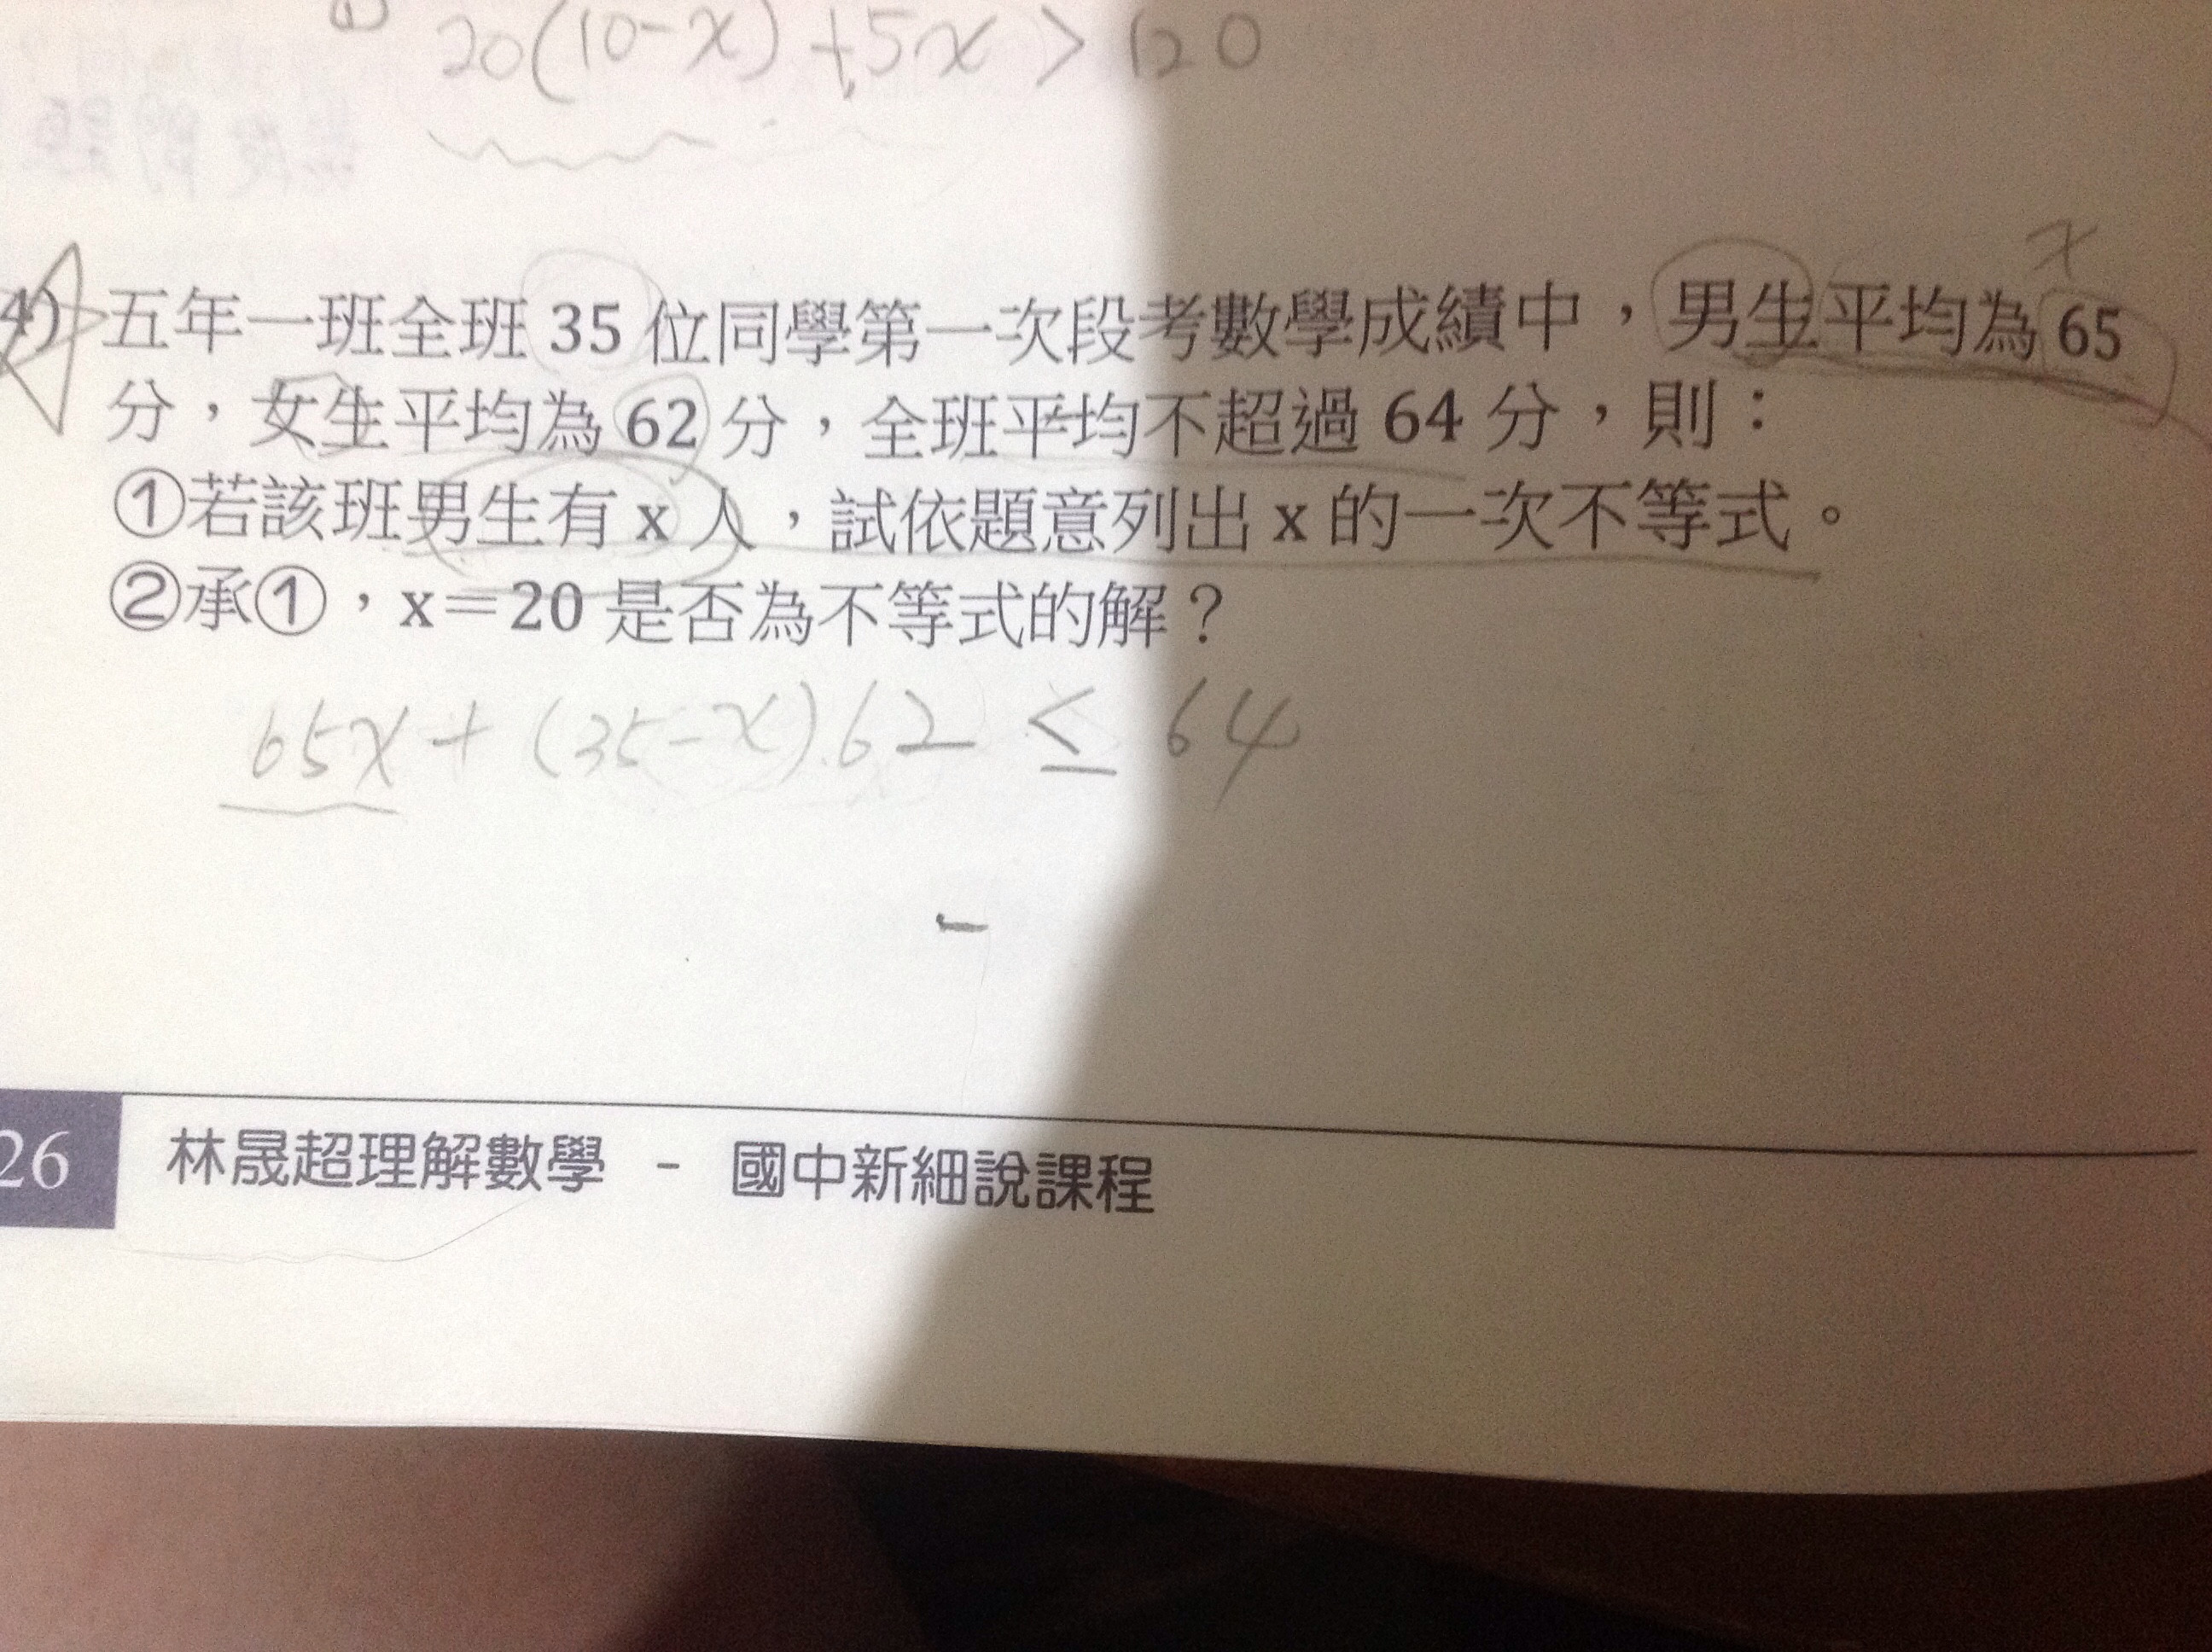 ① 20(10-x)+5x > 120
x
4) 五年一班全班 35 位同學第一次段考數學成績中，男生平均為 65
分，女生平均為 62 分，全班平均不超過 64 分，則：
①若該班男生有 x 人，試依題意列出 x 的一次不等式。
②承①，x＝20 是否為不等式的解？
65x+(35-x).62 ≤ 64
26 林晟超理解數學 - 國中新細說課程